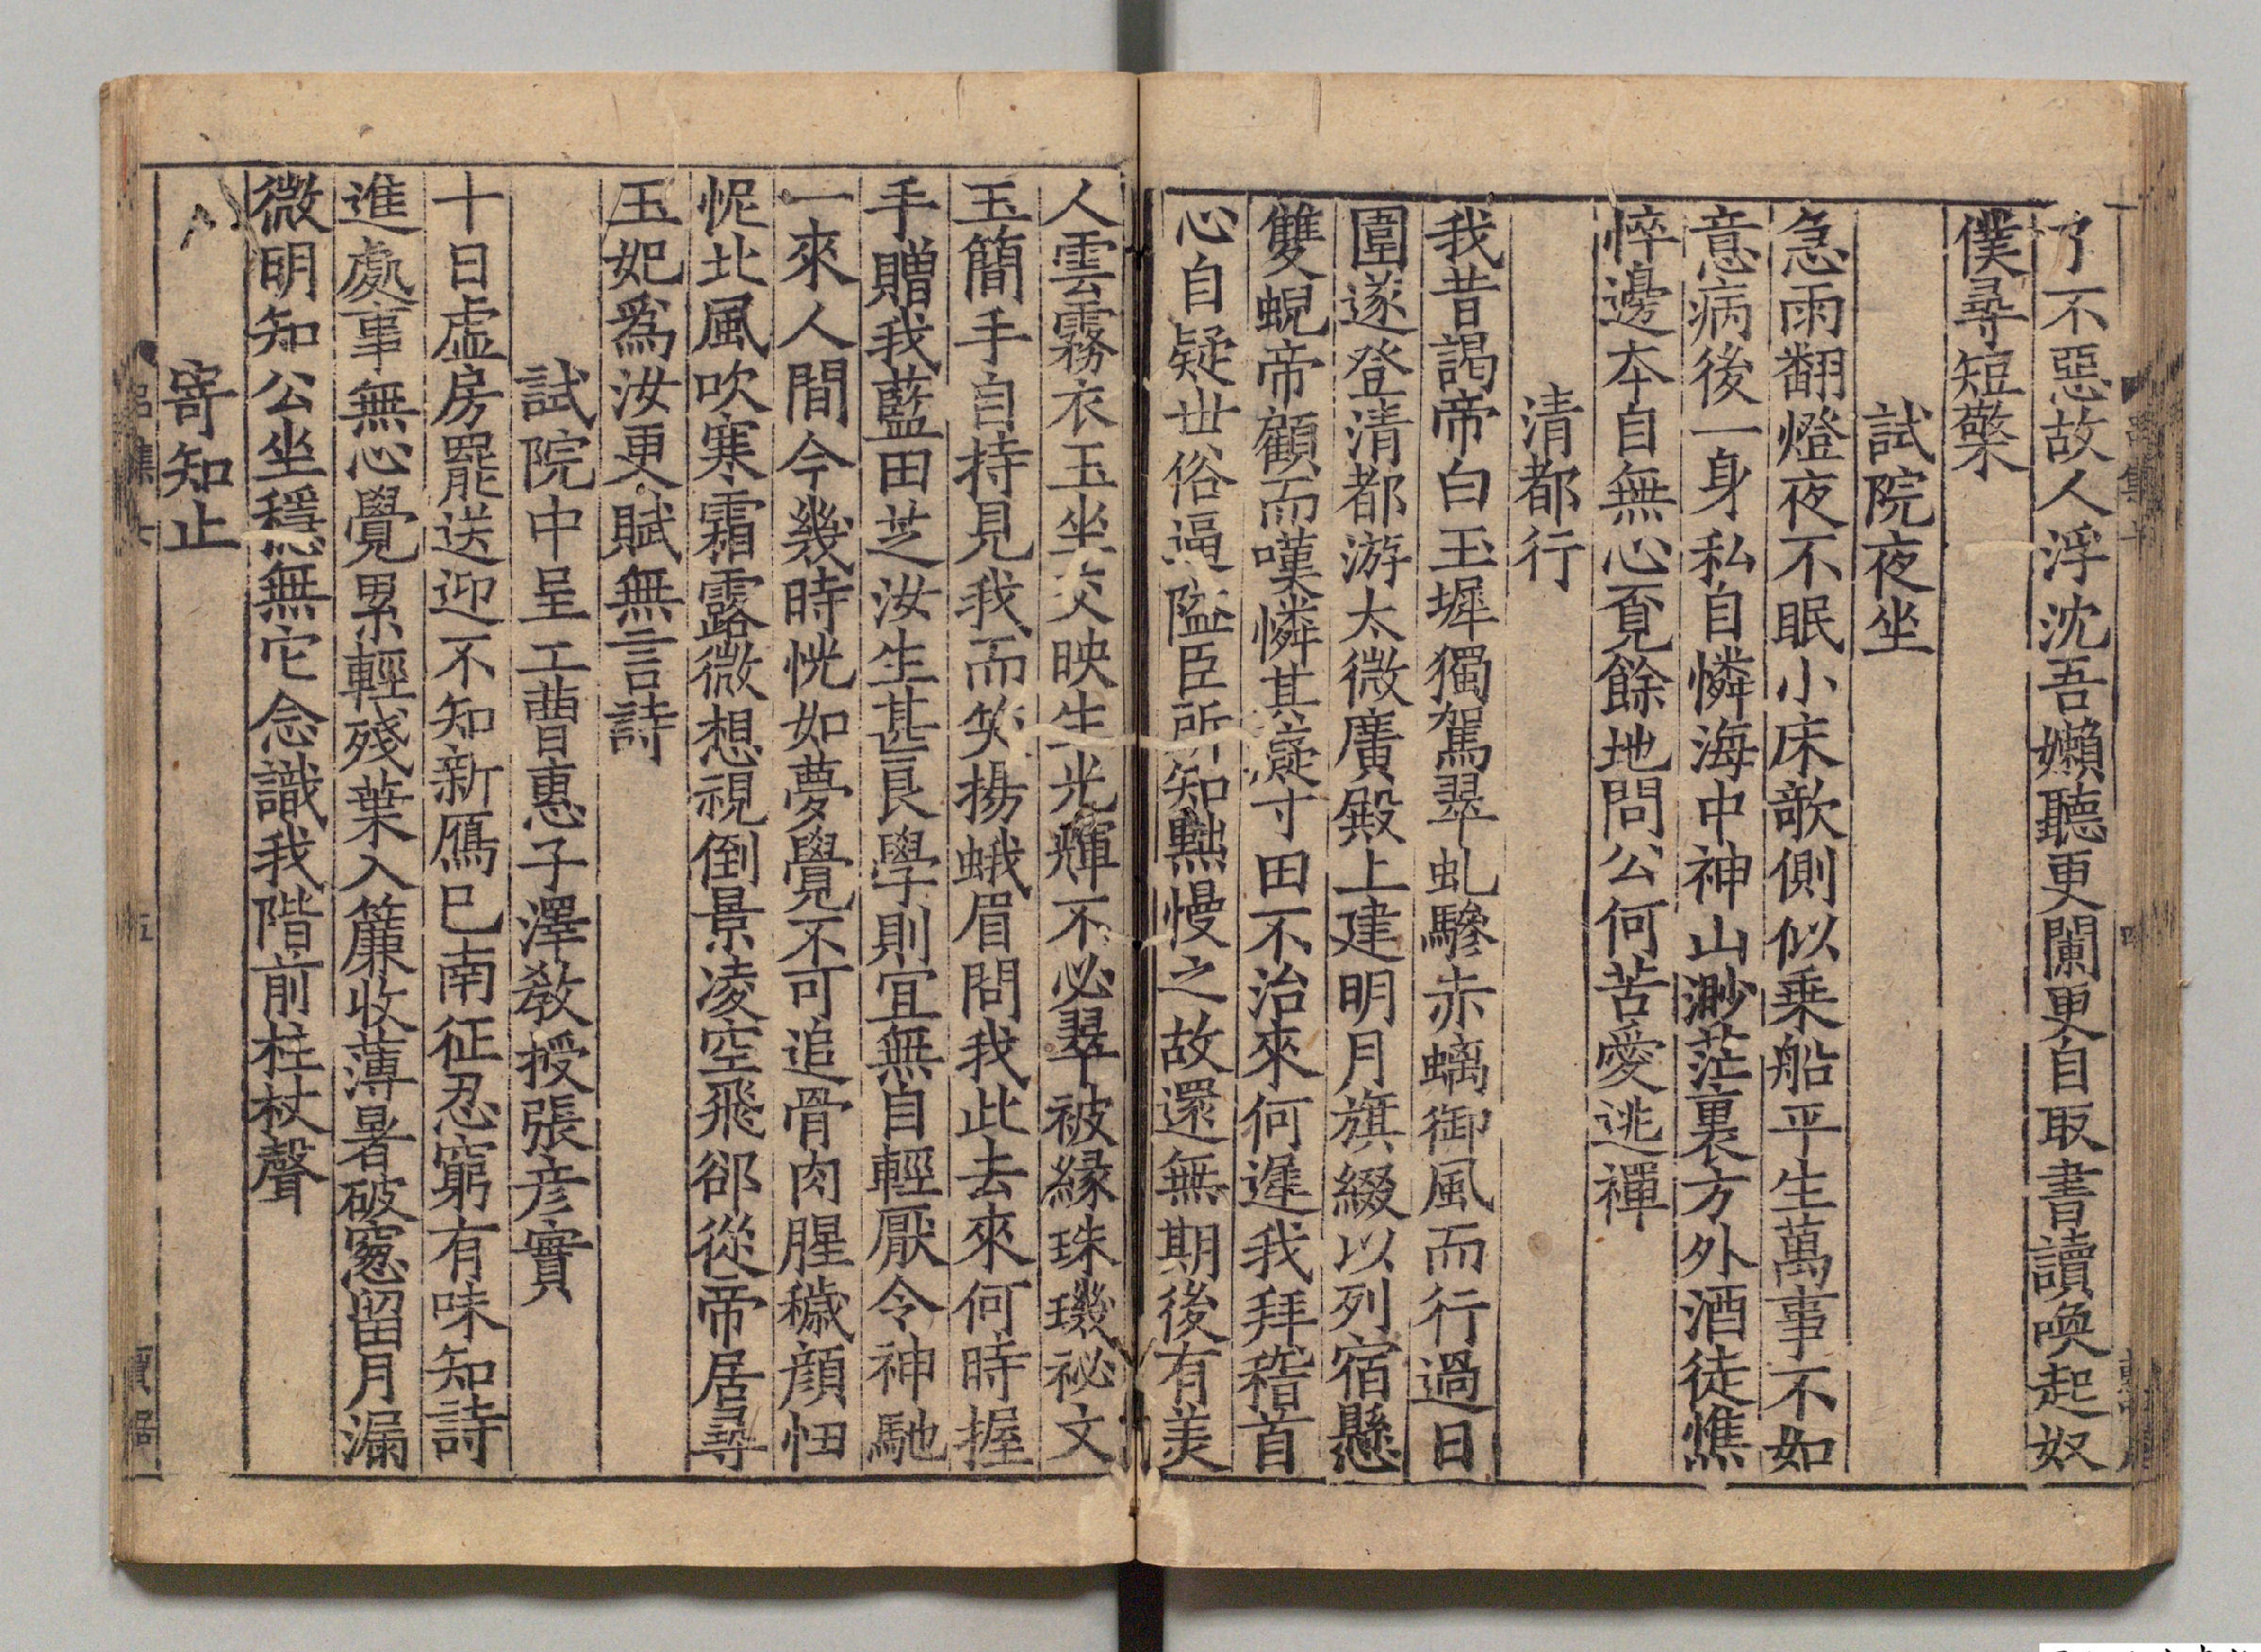 了不惡故人浮沈吾嬾聽更闌更自取書讀喚起奴
僕尋短檠
試院夜坐
急雨翻燈夜不眠小床欹側似乗船平生萬事不如
意病後一身私自憐海中神山渺茫裏方外酒徒憔
悴邊本自無心覔餘地問公何苦愛逃禪
清都行
我昔謁帝白玉墀獨駕翠虬驂赤螭御風而行過日
圍遂登清都游太微廣殿上建明月旗綴以列宿懸
雙蜺帝顧而嘆憐其癡寸田不治來何遲我拜稽首
心自疑丗俗逼隘臣所知黜慢之故還無期後有美
人雲霧衣玉坐交映生光輝不必翠被緣珠璣祕文
玉簡手自持見我而笑揚蛾眉問我此去來何時握
手贈我藍田芝汝生甚良學則宜無自輕厭令神馳
一來人間今幾時恍如夢覺不可追骨肉腥穢顔忸
怩北風吹寒霜露微想視倒景凌空飛郤從帝居尋
玉妃爲汝更賦無言詩
試院中呈工曹惠子澤敎授張彦實
十日虛房罷送迎不知新鴈已南征忍窮有味知詩
進處事無心覺累輕殘葉入簾收薄暑破窻留月漏
微明知公坐穩無它念識我階前拄杖聲
寄知止